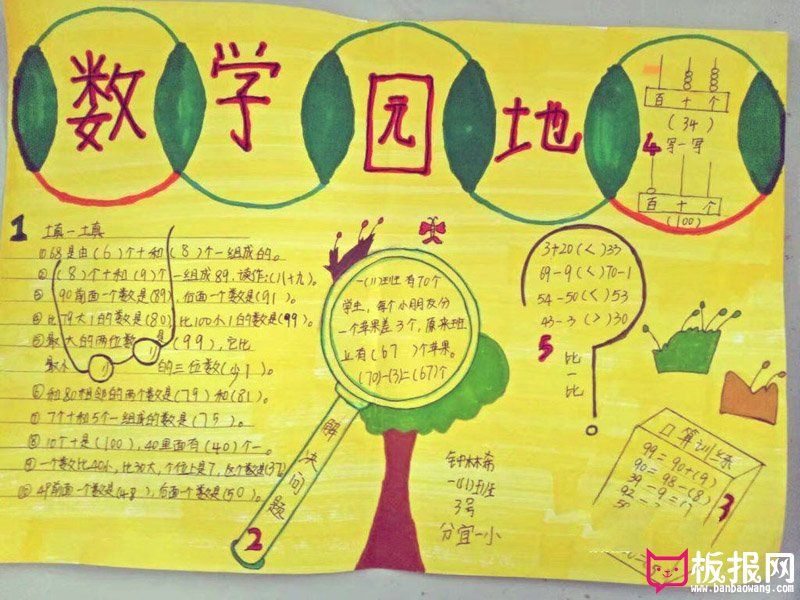 数学园地
百十个
(34)
4写一写
百十个
(100)
1 填一填
①68是由(6)个十和(8)个一组成的。
②(8)个十和(9)个一组成89,读作:(八十九)。
③90前面一个数是(89),后面一个数是(91)。
④比79大1的数是(80),比100小1的数是(99)。
⑤最大的两位数是(99),它比
最小的三位数(少1)。
⑥和80相邻的两个数是(79)和(81)。
⑦7个十和5个一组成的数是(75)。
⑧10个十是(100),40里面有(40)个一。
⑨一个数比40小,比30大,个位上是7,这个数是(37)
⑩49前面一个数是(48),后面一个数是(50)。
一(1)班有70个
学生,每个小朋友分
一个苹果差3个,原来班
上有(67)个苹果。
(70)-(3)=(67)个
解决问题
2
3+20(<)33
69-9(<)70-1
54-50(<)53
43-3(>)30
5 比一比
口算训练
99=90+(9)
90=98-(8)
39-9=
92
3
钟林希
一(1)班
3号
分宜一小
板报网
www.banbaowang.com